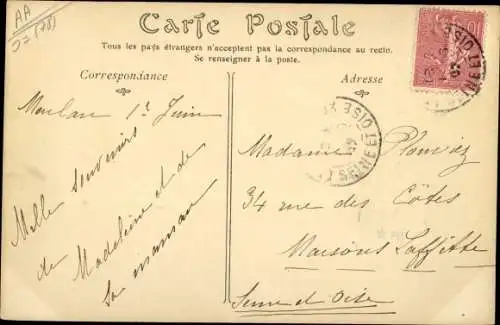 AA
Carte Postale
Tous les pays étrangers n'acceptent pas la correspondance au recto.
Se renseigner à la poste.
Correspondance
Adresse
Meulan 1r Juin
Mille souvenirs
de Madeleine et de
sa maman
Madame
34 rue des Côtes
Maisons Laffitte
Seine et Oise
SEINE ET OISE
10